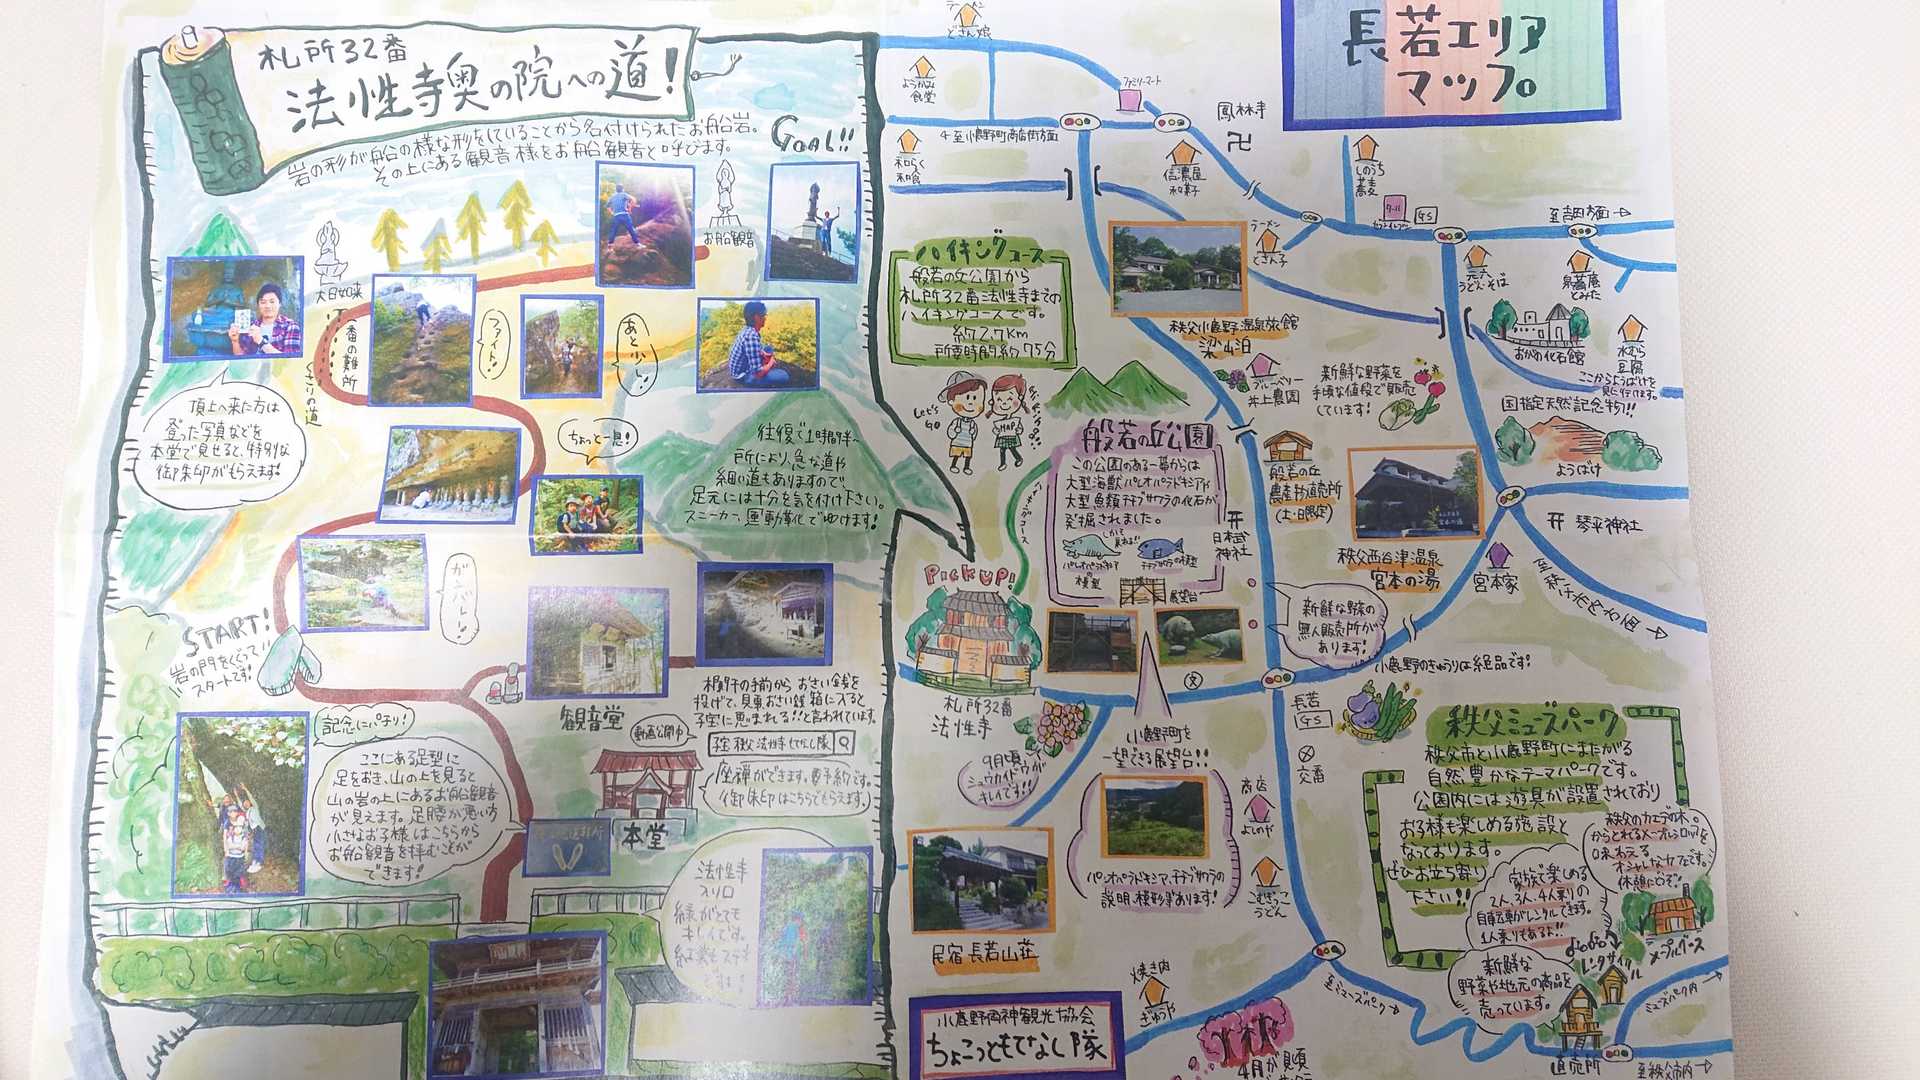 札所32番
法性寺奥の院への道!
岩の形が船の様な形をしていることから名付けられたお船岩。
その上にある観音様をお船観音と呼びます。
GOAL!!
お船観音
大日如来
一番の難所
くさりの道
ファイト!
あと少し!
頂上へ来た方は
登った写真などを
本堂で見せると、特別な
御朱印がもらえます!
ちょっと一息!
往復で1時間半〜
所により、急な道や
細い道もありますので、
足元には十分を気を付け下さい。
スニーカー、運動靴でゆけます!
ガンバレ!
START!
岩の門をくぐって
スタートです!
観音堂
投げて、見事おさい銭箱に入ると
子宝に恵まれる!!と言われています。
記念にパチリ!
ここにある足型に
足をおき、山の上を見ると
山の岩の上にあるお船観音
が見えます。足腰が悪い方
小さなお子様はこちらから
お船観音を拝むことが
できます!
動画公開中
座禅ができます。要予約です。
御朱印はこちらでもらえます。
本堂
法性寺
入口
緑がとても
キレイです。
紅葉もステキ
です!!
長若エリア
マップ
ラーメン
どさん娘
ようかみ
食堂
ファミリーマート
鳳林寺
至小鹿野町商店街方面
和らく
和食
信濃屋
和菓子
しのうち
蕎麦
GS
至吉田方面
ラーメン
どさん子
元六
うどん・そば
泉蕎庵
とみた
ハイキングコース
般若の丘公園から
札所32番法性寺までの
ハイキングコースです。
約2.7Km
所要時間約75分
秩父小鹿野温泉旅館
梁山泊
おがの化石館
水むら
豆腐
ここからようばけを
見に行けます。
国指定天然記念物!!
ようばけ
ブルーベリー
井上農園
新鮮な野菜を
手頃な値段で販売
しています!
Let's
GO
MAP
ハイキングコース
般若の丘公園
この公園のある一帯からは
大型海獣パレオパラドキシアや
大型魚類チチブサワラの化石が
発掘されました。
パレオパラドキシア
の模型
チチブサワラの模型
展望台
般若の丘
農産物直売所
(土・日限定)
日本武
神社
秩父西谷津温泉
宮本の湯
宮本家
琴平神社
新鮮な野菜の
無人販売所が
あります!
小鹿野のきゅうりは絶品です!
PICKUP!
札所32番
法性寺
9月頃
シュウカイドウが
キレイです!!
小鹿野町を
一望できる展望台!!
パレオパラドキシア、チチブサワラの
説明、模型があります!
長若
GS
交番
商店
よしのや
こむぎっこ
うどん
民宿 長若山荘
焼き肉
ぎゅうや
小鹿野両神観光協会
ちょこっともてなし隊
4月が見頃
秩父ミューズパーク
秩父市と小鹿野町にまたがる
自然豊かなテーマパークです。
公園内には遊具が設置されており
お子様も楽しめる施設と
なっております。
ぜひお立ち寄り
下さい!!
秩父のカエデの木
からとれるメープルシロップを
味わえる
オシャレなカフェです。
休憩にどうぞ!
家族で楽しめる
2人、3人、4人乗りの
自転車がレンタルできます。
1人乗りもあるよ!!
新鮮な
野菜や地元の商品を
売っています。
レンタサイクル
メープルベース
直売所
至ミューズパーク
ミューズパーク内
至秩父市内